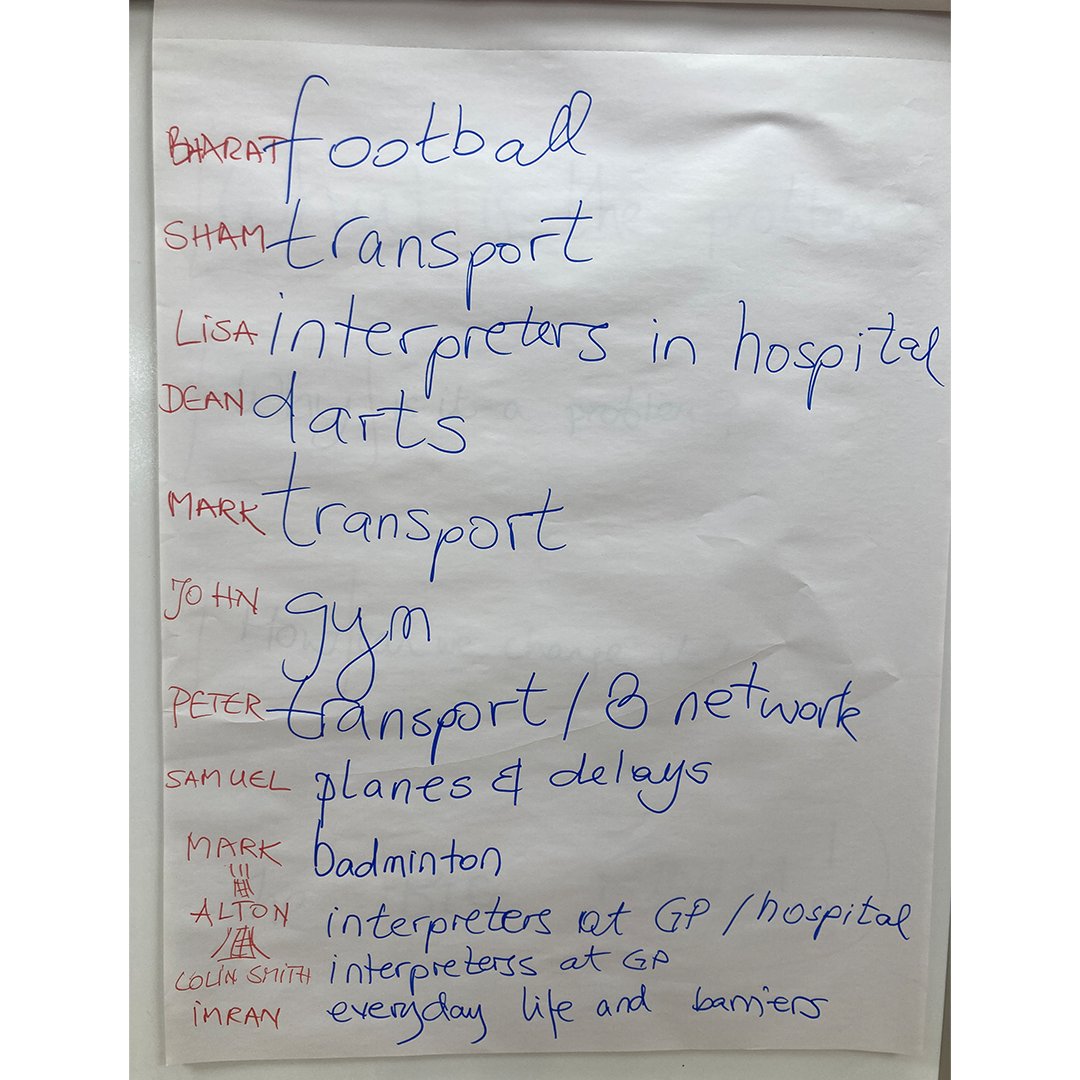 BHARAT football
SHAM transport
LiSA interpreters in hospital
DEAN darts
MARK transport
JOHN gym
PETER transport / 3 network
SAMUEL planes & delays
MARK badminton
ALTON interpreters at GP / hospital
COLIN SMITH interpreterss at GP
iMRAN everyday life and barriers